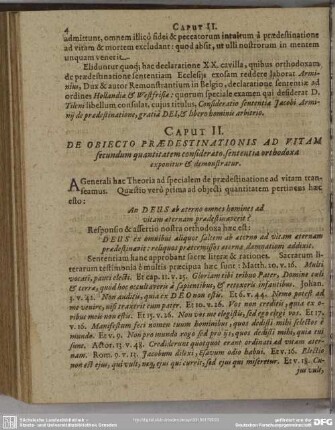 4 CAPUT II.
admittunt, omnem illicò fidei & peccatorum intuitum à prædestinatione
ad vitam & mortem excludant: quod absit, ut ulli nostrorum in mentem
unquam venerit.
Eliduntur quoq; hac declaratione XX. cavilla, quibus orthodoxam
de prædestinatione sententiam Ecclesijs exosam reddere laborat Armi-
nius, Dux & autor Remonstrantium in Belgio, declaratione sententiæ ad
ordines Hollandiæ & Westfrisiæ: quorum speciale examen qui desiderat D.
Tileni libellum consulat, cujus titulus, Consideratio sententiæ Jacobi Armi-
nij de prædestinatione, gratiâ DEI & libero hominis arbitrio.
CAPUT II.
DE OBJECTO PRÆDESTINATIONIS AD VITAM
secundum quantitatem considerato, sententia orthodoxa
exponitur & demonstratur.
A Generali hac Theoria ad specialem de prædestinatione ad vitam tran-
seamus. Quæstio verò prima ad objecti quantitatem pertinens hæc
esto:
An DEUS ab æterno omnes homines ad
vitam æternam prædestinaverit?
Responsio & assertio nostra orthodoxa hæc est:
DEUS ex omnibus aliquos saltem ab æterno ad vitam æternam
prædestinavit: reliquos prætermissos æternæ damnationi addixit.
Sententiam hanc approbant sacræ literæ & rationes. Sacrarum li-
terarum testimonia è multis præcipua hæc sunt: Matth. 20. v. 16. Multi
vocati, pauci electi. Et cap. 11. v. 25. Gloriam tibi tribuo Pater, Domine cæli
& terræ, quod hæc occultaveris à sapientibus, & retexeris infantibus. Johan.
3. v. 41. Non auditis, quia ex DEO non estis. Et 6. v. 44. Nemo potest ad
me venire, nisi traxerit eum pater. Et 10. v. 26. Vos non creditis, quia ex o-
vibus meis non estis. Et 15. v. 16. Non vos me elegistis, sed ego elegi vos. Et 17.
v. 16. Manifestum feci nomen tuum hominibus, quos dedisti mihi selectos è
mundo. Et v. 9. Non pro mundo rogo sed pro ijs, quos dedisti mihi, quia tui
sunt. Actor. 13. v. 48. Crediderunt quotquot erant ordinati ad vitam æter-
nam. Rom. 9. v. 13. Jacobum dilexi, Esavum odio habui. Et v. 16. Electio
non est ejus, qui vult, non ejus qui currit, sed ejus qui miseretur. Et v. 18. Cu-
jus vult